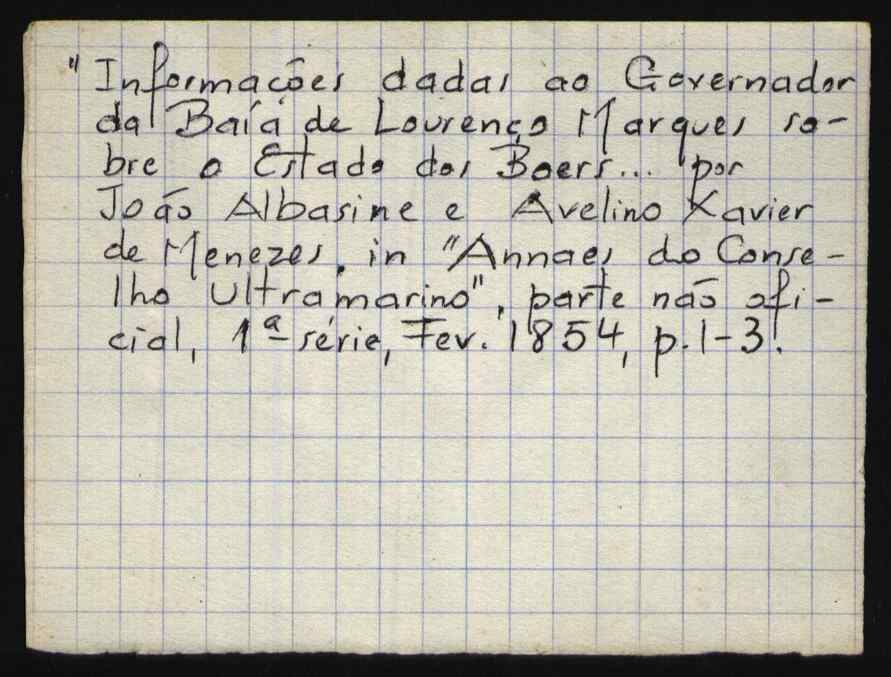 "Informações dadas ao Governador
da Baía de Lourenço Marques so-
bre o Estado dos Boers... por
João Albasine e Avelino Xavier
de Menezes, in "Annaes do Conse-
lho Ultramarino", parte não ofi-
cial, 1ª série, Fev. 1854, p. 1-3.